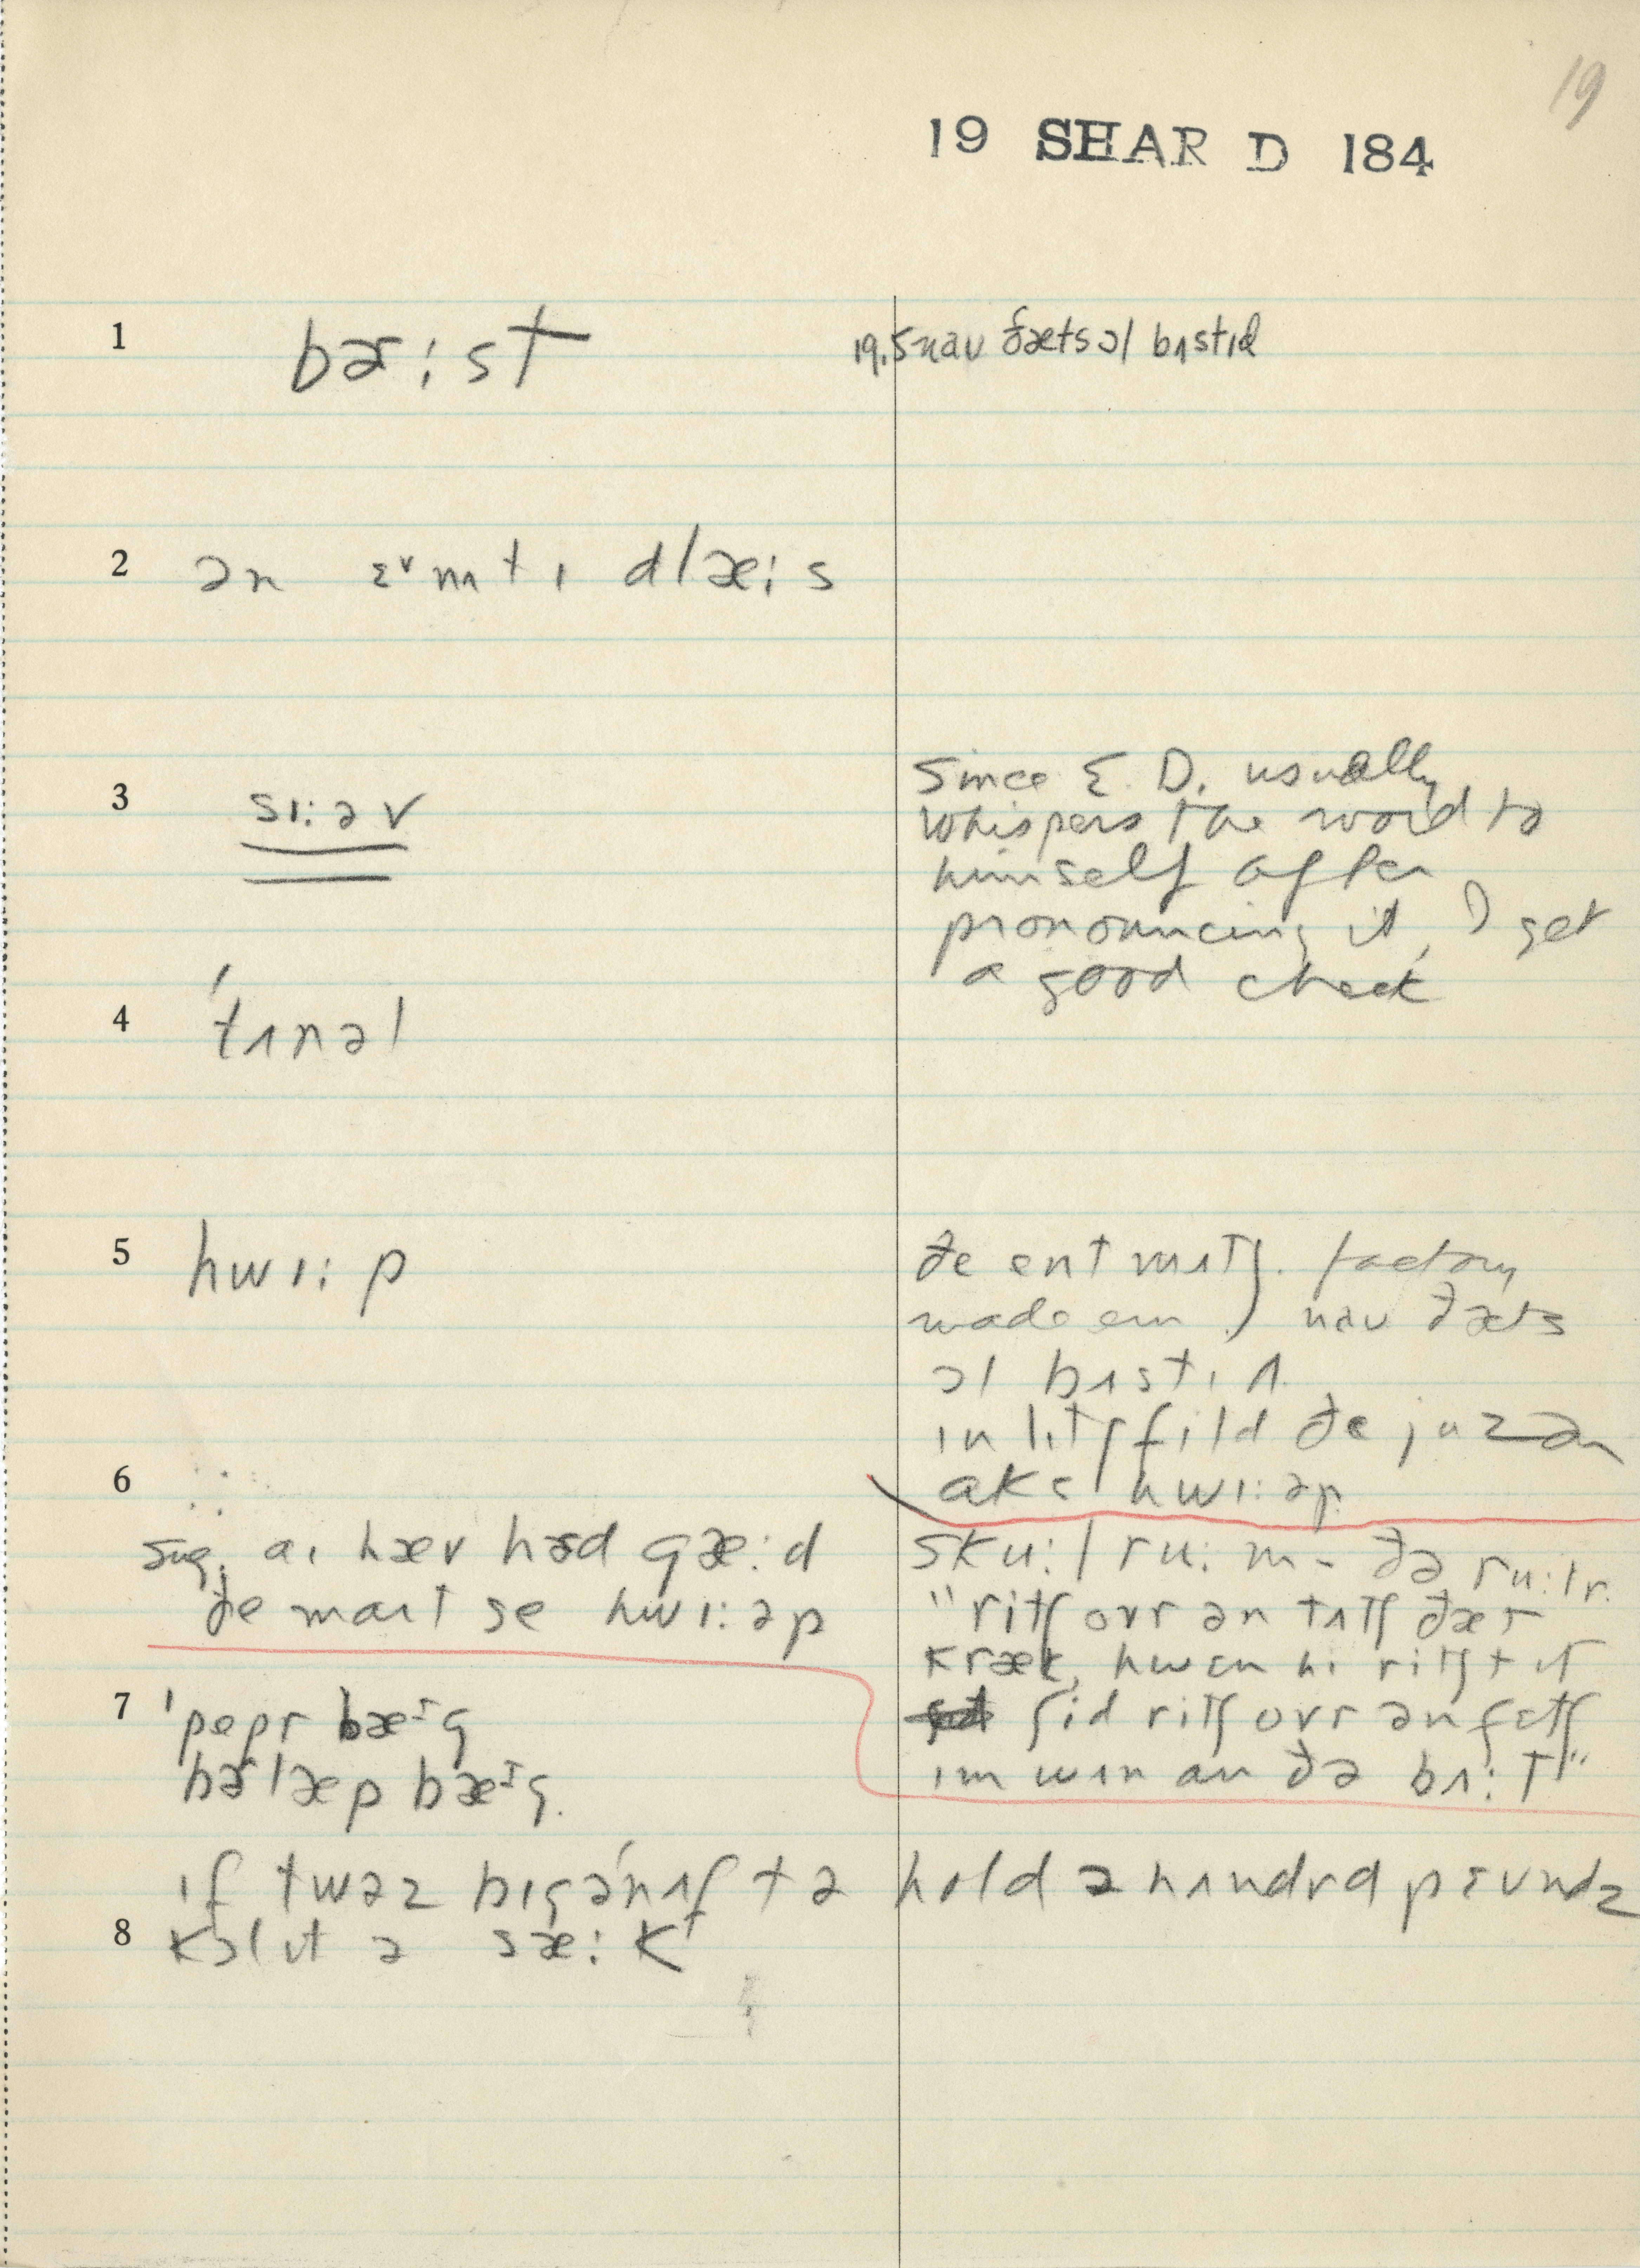 19
19 SHAR D 184
1 bɚ:st
19.5 naʊ ðæts ɔl bʌstɪd
2 ən ɛᵛmtɪ glæ:s
3 sɪ:əv
Since E. D. usually
whispers the word to
himself after
pronouncing it, I get
a good check
4 'tʌnəl
5 hwɪ:p
ðe ent mʌtʃ. factory
made em) naʊ ðæts
ɔl bʌstɪd
ɪn lɪtʃfild ðe juz ən
hwɪ:əp
6
sug. aɪ hæv hɚd
ðe maɪt se hwɪ:əp
sku:l ru:m - ðə ru:lr.
"ritʃ ovr ən tʌtʃ ðæt
kræk, hwɛn hi ritʃt ɪt
ʃid ritʃ ovr ən fɛtʃ
ɪm wʌn an ðə
7 'pepr bæᶦg
bɚlæp bæᶦg.
ɪf twəz bɪg ənʌf tə hold ə hʌndrd
8 kɔl ɪt ə sæ:k